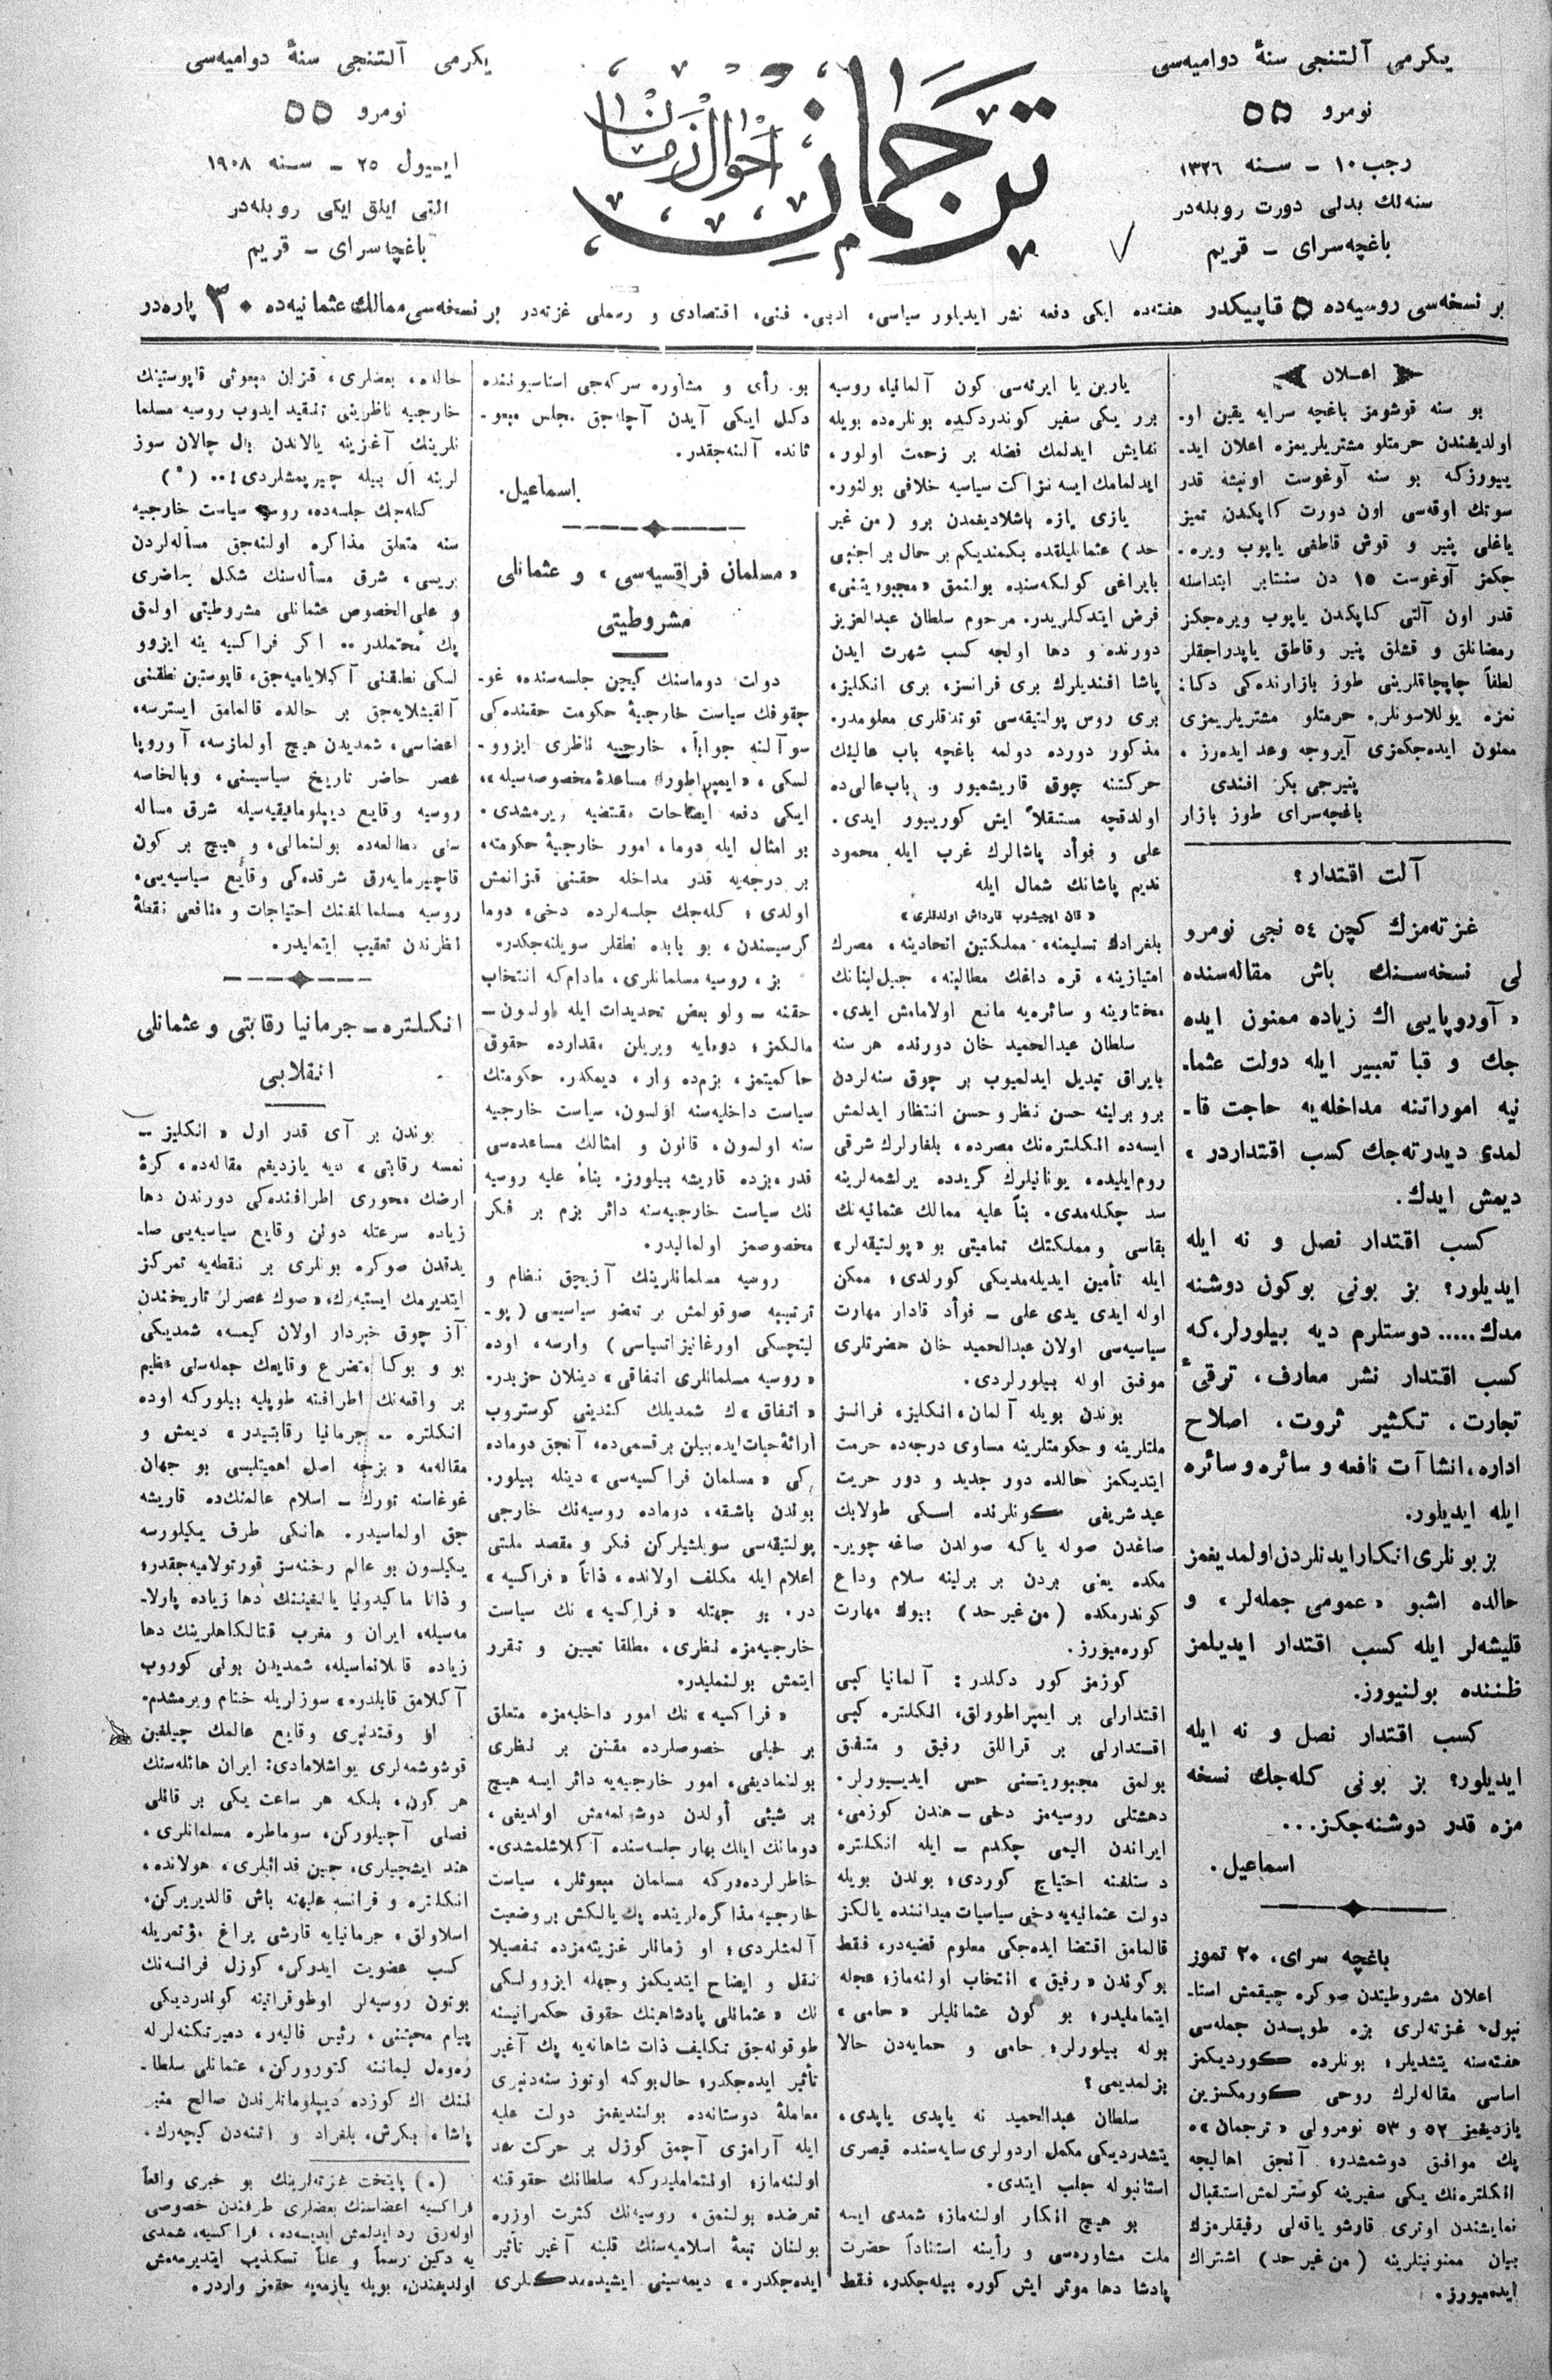 یكرمی آلتنجی سنهٔ دوامیه‌سی
نومرو ٥٥
رجب ١٠ – سنه ١٣٢٦
سنه‌لك بدلی دورت روبله‌در
باغچه‌سرای – قریم
ترجمان
احوال زمان
یكرمی آلتنجی سنهٔ دوامیه‌سی
نومرو ٥٥
اییول ٢٥ – سنه ١٩٠٨
التی ایلق ایكی روبله‌در
باغچه‌سرای – قریم
بر نسخه‌سی روسیه‌ده ٥ قاپیكدر هفته‌ده ایكی دفعه نشر ایدیلور سیاسی، ادبی، فنی، اقتصادی و رسملی غزته‌در بر نسخه‌سی ممالك عثمانیه‌ده ٣٠ پاره‌در
اعلان
بو سنه قوشومز باغچه سرایه یقین او-
اولدیغندن حرمتلو مشتریلریمزه اعلان اید-
ییورزكه بو سنه آوغوست اونیشه قدر
سوتك اوقه‌سی اون دورت كاپكدن تمیز
یاغلی پنیر و قوش قاطغی یاپوب ویره-
جكمز آوغوست ١٥ دن سنتابر ابتداسنه
قدر اون آلتی كاپكدن یاپوب ویره‌جكز
رمضانلق و قشلق پنیر وقاطق یاپدراجقلر
لطفاً چاپچاقلرینی طوز بازارنده‌كی دكا:
نمزه یوللاسونلر. حرمتلو مشتریلریمزی
ممنون ایده‌جكمزی آیروجه وعد ایده‌رز .
پنیرجی بكر افندی
باغچه‌سرای طوز بازار
آلت اقتدار؟
غزته‌مزك كچن ٥٤ نجی نومرو
لی نسخه‌سنك باش مقاله‌سنده
«آوروپایی اك زیاده ممنون ایده
جك و قبا تعبیر ایله دولت عثما-
نیه اموراتنه مداخله‌یه حاجت قا-
لمدی دیدرته‌جك كسب اقتداردر»
دیمش ایدك.
كسب اقتدار نصل و نه ایله
ایدیلور؟ بز بونی بوكون دوشنه
مدك..... دوستلرم دیه بیلورلر.كه
كسب اقتدار نشر معارف، ترقیٔ
تجارت، تكثیر ثروت، اصلاح
اداره،انشاآت نافعه و سائره و سائره
ایله ایدیلور.
بز بونلری انكار ایدنلردن اولمدیغمز
حالده اشبو «عمومی جمله‌لر» و
قلیشه‌لر ایله كسب اقتدار ایدیلمز
ظننده بولنیورز.
كسب اقتدار نصل و نه ایله
ایدیلور؟ بز بونی كله‌جك نسخه
مزه قدر دوشنه‌جكز...
اسماعیل.
باغچه سرای، ٢٠ تموز
اعلان مشروطیتدن صوكره چیقمش استا-
نبول غزته‌لری بزه طوپدن جمله‌سی
هفته‌سنه یتشدیلر؛ بونلرده كوردیكمز
اساسی مقاله‌لرك روحی كورمكسزین
یازدیغمز ٥٢ و ٥٣ نومرولی «ترجمان»ه
پك موافق دوشمشدر؛ آنجق اهالیجه
انكلتره‌نك یكی سفیرینه كوسترلمش استقبال
نمایشندن اوتری قارشو یاقه‌لی رفیقلرمزك
بیان ممنونیتلرینه (من غیر حد) اشتراك
ایده‌میورز.
یارین یا ایرته‌سی كون آلمانیا، روسیه
برر یكی سفیر كوندردكده بونلره‌ده بویله
نمایش ایدلمك فضله بر زحمت اولور،
ایدلمامك ایسه نزاكت سیاسیه خلافی بولنور.
یازی یازه باشلادیغمدن برو (من غیر
حد) عثمانلیلقده بكمندیكم بر حال بر اجنبی
بایراغی كولكه‌سنده بولنمق «مجبوریتنی»
فرض ایتدكلریدر. مرحوم سلطان عبدالعزیز
دورنده و دها اولجه كسب شهرت ایدن
پاشا افندیلرك بری فرانسز، بری انكلیز،
بری روس پولتیقه‌سی توتدقلری معلومدر.
مذكور دورده دولمه باغچه باب عالینك
حركتنه چوق قاریشمیور و باب عالی‌ده
اولدقچه مستقلاً ایش كورییور ایدی.
علی و فوأد پاشالرك غرب ایله محمود
ندیم پاشانك شمال ایله
«قان ایچیشوب قارداش اولدقلری»
بلغرادك تسلیمنه، مملكتین اتحادینه، مصرك
امتیازینه، قره داغك مطالبنه، جبل لبنانك
مختارینه و سائره‌یه مانع اولامامش ایدی.
سلطان عبدالحمید خان دورنده هر سنه
بایراق تبدیل ایدلمیوب بر چوق سنه‌لردن
برو برلینه حسن نظر و حسن انتظار ایدلمش
ایسه‌ده انكلتره‌نك مصرده، بلغارلرك شرقی
روم‌ایلیده، یونانیلرك كریدده یرلشمه‌لرینه
سد چكله‌مدی. بنأ علیه ممالك عثمانیه‌نك
بقاسی و مملكتك تمامیتی بو «پولتیقه‌لر»
ایله تأمین ایدیله‌مدیكی كورلدی؛ ممكن
اوله ایدی یدی علی – فوأد قادار مهارت
سیاسیه‌سی اولان عبدالحمید خان حضرتلری
موفق اوله بیلورلردی.
بوندن بویله آلمان، انكلیز، فرانسز
ملتلرینه و حكومتلرینه مساوی درجه‌ده حرمت
ایتدیكمز حالده دور جدید و دور حریت
عید شریفی كونلرنده اسكی طولابك
صاغدن صوله یاكه صولدن صاغه چویر-
مكده یعنی بردن بر برلینه سلام وداع
كوندرمكده (من غیر حد) بیوك مهارت
كوره‌میورز.
كوزمز كور دكلدر: آلمانیا كبی
اقتدارلی بر ایمپراطورلق، انكلتره كبی
اقتدارلی بر قراللق رفیق و متفق
بولمق مجبوریتنی حس ایدییورلر.
دهشتلی روسیه‌مز دخی – هندن كوزمی،
ایراندن الیمی چكدم – ایله انكلتره
دستلغنه احتیاج كوردی؛ بوندن بویله
دولت عثمانیه‌یه دخی سیاسیات میداننده یالكز
قالمامق اقتضا ایده‌جكی معلوم قضیه‌در، فقط
بوكوندن «رفیق» انتخاب اولنه‌ماز؛ عجله
ایتمامیلدر؛ بو كون عثمانلیلر «حامی»
بوله بیلورلر؛ حامی و حمایه‌دن حالا
بزلمدیمی؟
سلطان عبدالحمید نه یاپدی یاپدی،
یتشدردیكی مكمل اردولری سایه‌سنده قیصری
استانبوله جلب ایتدی.
بو هیچ انكار اولنه‌ماز؛ شمدی ایسه
ملت مشاوره‌سی و رأینه استناداً حضرت
پادشا دها موثر ایش كوره بیله‌جكدر، فقط
بو. رأی و مشاوره سركه‌جی استاسیوننده
دكل ایكی آیدن آچلاجق مجلس مبعو-
ثانده آلنه‌جقدر.
اسماعیل.
«مسلمان فراقسیه‌سی» و عثمانلی
مشروطیتی
دولت دوماسنك كیچن جلسه‌سنده، غو-
جقوفك سیاست خارجیهٔ حكومت حقنده‌كی
سوآلنه جواباً، خارجیه ناظری ایزوو-
لسكی، «ایمپراطورك مساعدهٔ مخصوصه‌سیله»،
ایكی دفعه ایضاحات مقتضیه ویرمشدی.
بو امثال ایله دوما، امور خارجیهٔ حكومته،
بر درجه‌یه قدر مداخله حقنی قزانمش
اولدی؛ كله‌جك جلسه‌لرده دخی، دوما
كرسیسندن، بو بابده نطقلر سویلنه‌جكدر.
بز، روسیه مسلمانلری، مادام‌كه انتخاب
حقنه – ولو بعض تحدیدات ایله اولسون –
مالكمز؛ دومایه ویریلن مقدارده حقوق
حاكمیتمز، بزم‌ده وار، دیمكدر. حكومتك
سیاست داخلیه‌سنه اولسون، سیاست خارجیه
سنه اولسون، قانون و امثالك مساعده‌سی
قدر، بزده قاریشه بیلورز. بناءً علیه روسیه
نك سیاست خارجیه‌سنه دائر بزم بر فكر
مخصوصمز اولمالیدر.
روسیه مسلمانلرینك آزیچق نظام و
ترتیبه صوقولمش بر تعضو سیاسیسی (پو-
لیتچسكی اورغانیزاتسیاسی) وارسه، اوده
«روسیه مسلمانلری اتفاقی» دینلان حزبدر.
«اتفاق»ك شمدیلك كندینی كوستروب
ارائهٔ حیات ایده‌بیلن بر قسمی‌ده، آنجق دوماده
كی «مسلمان فراكسیه‌سی» دینله بیلور.
بوندن باشقه، دوماده روسیه‌نك خارجی
پولتیقه‌سی سویلشیلركن فكر و مقصد ملتی
اعلام ایله مكلف اولانده، ذاتاً «فراكسیه»
در. بو جهتله «فراكسیه» نك سیاست
خارجیه‌مزه نظری، مطلقا تعیین و تقرر
ایتمش بولنملیدر.
«فراكسیه» نك امور داخلیه‌مزه متعلق
بر خیلی خصوصلرده مقنن بر نظری
بولنمادیغی، امور خارجیه‌یه دائر ایسه هیچ
بر شیئی أولدن دوشنمه‌مش اولدیغی،
دومانك ایلك بهار جلسه‌سنده آكلاشلمشدی.
خاطرلرده‌دركه مسلمان مبعوثلر، سیاست
خارجیه مذاكره‌لرینده پك یالكش بر وضعیت
آلمشلردی؛ او زمانلر غزیته‌مزده تفصیلا
نقل و ایضاح ایتدیكمز وجهله ایزوولسكی
نك «عثمانلی پادشاهنك حقوق حكمرانیسنه
طوقونه‌جق تكالیف ذات شاهانه‌یه پك آغیر
تأثیر ایده‌جكدر؛ حال‌بوكه اوتوز سنه‌دنبری
معاملهٔ دوستانه‌ده بولندیغمز دولت علیه
ایله آرامزی آچمق كوزل بر حركت عد
اولنه‌ماز؛ اونتمامیلدركه سلطانك حقوقنه
تعرضده بولنمق، روسیه‌نك كثرت اوزره
بولنان تبعهٔ اسلامیه‌سنك قلبنه آغیر تأثیر
ایده‌جكدر» دیمه‌سینی ایشیده‌مدكلری
حالده، بعضلری، قزان مبعوثی قاپوستینك
خارجیه ناظرینی تنقید ایدوب روسیه مسلما
نلرینك آغزینه یالاندن بال چالان سوز
لرینه ال بیله چیرپمشلردی!.. (*)
كله‌جك جلسه‌ده، روسیه سیاست خارجیه
سنه متعلق مذاكره اولنه‌جق مسأله‌لردن
بریسی، شرق مسأله‌سنك شكل حاضری
و علی الخصوص عثمانلی مشروطیتی اولمق
پك محتملدر.. اكر فراكسیه ینه ایزوو
لسكی نطقنی آكلایامیه‌جق، قاپوستین نطقنی
آلقیشلایه‌جق بر حالده قالمامق ایسترسه،
اعضاسی، شمدیدن هیچ اولمازسه، آوروپا
عصر حاضر تاریخ سیاسیسنی، وبالخاصه
روسیه وقایع دیپلوماتیقیه‌سیله شرق مساله
سنی مطالعه‌ده بولنمالی، و هیچ بر كون
قاچیرمایه‌رق شرقده‌كی وقایع سیاسیه‌یی،
روسیه مسلمانلغنك احتیاجات و منافعی نقطهٔ
نظرندن تعقیب ایتمالیدر.
انكلتره – جرمانیا رقابتی و عثمانلی
انقلابی
بوندن بر آی قدر اول «انكلیز –
نمسه رقابتی» دیه یازدیغم مقاله‌ده، كرهٔ
ارضك محوری اطرافنده‌كی دورندن دها
زیاده سرعتله دونن وقایع سیاسیه‌یی صا-
یدقدن صوكره بونلری بر نقطه‌یه تمركز
ایتدیرمك ایستیه‌رك، «صوك عصرلر تاریخندن
آز چوق خبردار اولان كیمسه، شمدیكی
بو و بوكا متفرع وقایعك جمله‌سنی عظیم
بر واقعه‌نك اطرافنه طوپلیه بیلوركه اوده
انكلتره .. جرمانیا رقابتیدر» دیمش و
مقاله‌مه «بزجه اصل اهمیتلیسی بو جهان
غوغاسنه تورك – اسلام عالمنك‌ده قاریشه
جق اولماسیدر. هانكی طرف یكیلورسه
یكیلسون بو عالم رخنه‌سز قورتولامیه‌جقدر؛
و ذاتا ماكیدونیا یانغیننك دها زیاده پارلا-
مه‌سیله، ایران و مغرب قتالكاهلرینك دها
زیاده قانلانماسیله، شمدیدن بونی كوروب
آكلامق قابلدر.» سوزلریله ختام ویرمشدم.
او وقتدنبری وقایع عالمك چیلغین
قوشوشمه‌لری یواشلامادی: ایران هائله‌سنك
هر كون، بلكه هر ساعت یكی بر قانلی
فصلی آچیلوركن، سوماطره مسلمانلری،
هند ایشچیلری، چین فدائیلری، هولانده،
انكلتره و فرانسه علیهنه باش قالدیریركن،
اسلاولق، جرمانیایه قارشی پراغ قونغره‌سنه
كسب عضویت ایدركن، كوزل فرانسه‌نك
بوتون روسیه‌لر اوطوقراتینه كوندردیكی
پیام محبتنی، رئیس فالیه‌ر، دمیر تكنه‌لرله
ره‌وه‌ل لیماننه كتوروركن، عثمانلی سلطا-
نتنك اك كوزده دیپلوماتلرندن صالح منیر
پاشا، بكرش، بلغراد و آتنه‌دن كیچه‌رك،
(*) پایتخت غزته‌لرینك بو خبری واقعاً
فراكسیه اعضاسنك بعضلری طرفندن خصوصی
اوله‌رق رد ایدلمش ایدیسه‌ده، فراكسیه، شمدی
یه دكین رسماً و علناً تكذیب ایتدیرمه‌مش
اولدیغندن، بویله یازمه‌یه حقمز واردر.